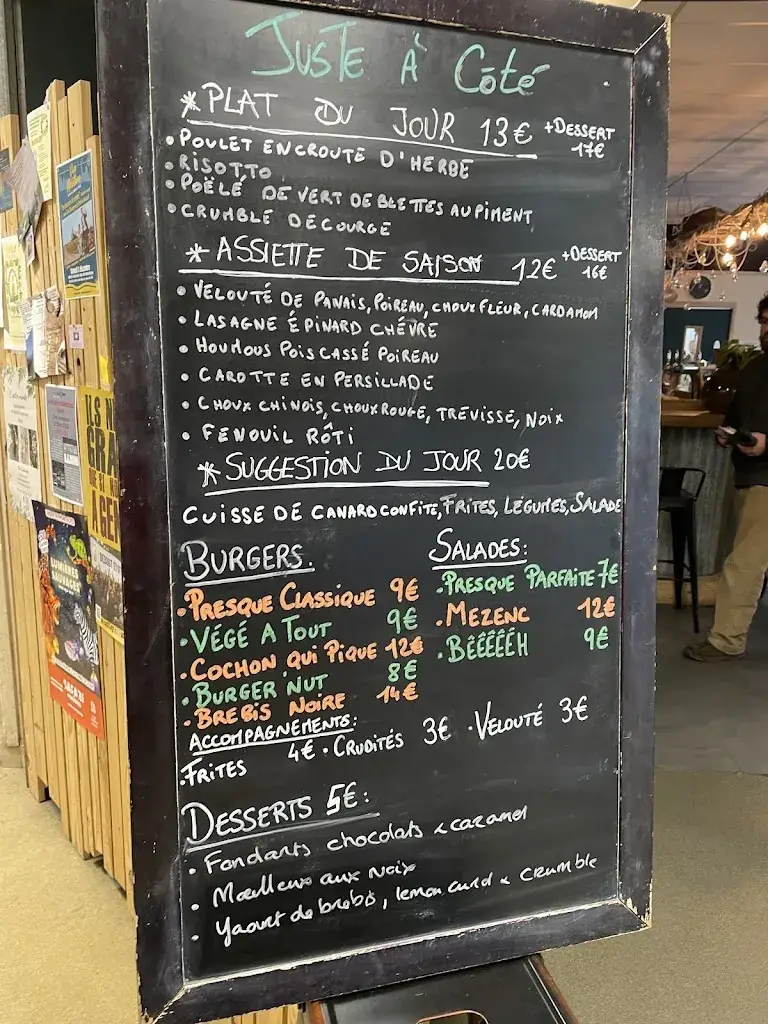 JUSTE À CÔTÉ
*PLAT DU JOUR 13€ +DESSERT 17€
• POULET EN CROUTE D'HERBE
• RISOTTO
• POÊLÉ DE VERT DE BLETTES AU PIMENT
• CRUMBLE DE COURGE
* ASSIETTE DE SAISON 12€ +DESSERT 16€
• VELOUTÉ DE PANAIS, POIREAU, CHOUX FLEUR, CARDAMOM
• LASAGNE ÉPINARD CHÈVRE
• HOUMOUS POIS CASSÉ POIREAU
• CAROTTE EN PERSILLADE
• CHOUX CHINOIS, CHOUX ROUGE, TREVISSE, NOIX
• FENOUIL RÔTI
*SUGGESTION DU JOUR 20€
CUISSE DE CANARD CONFITE, FRITES, LEGUMES, SALADE
BURGERS:
• PRESQUE CLASSIQUE 9€
• VÉGÉ A TOUT 9€
• COCHON QUI PIQUE 12€
• BURGER'NUT 8€
• BREBIS NOIRE 14€
SALADES:
• PRESQUE PARFAITE 7€
• MEZENC 12€
• BÊÊÊÊÊH 9€
ACCOMPAGNEMENTS:
• FRITES 4€ • CRUDITÉS 3€ • VELOUTÉ 3€
DESSERTS 5€:
• Fondants chocolats & caramel
• Moelleux aux Noix
• Yaourt de brebis, lemon curd & crumble